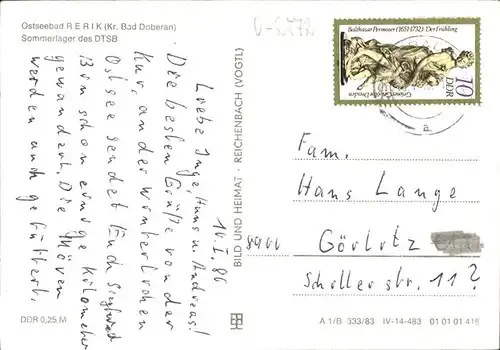 Ostseebad RERIK (Kr. Bad Doberan)
Sommerlager des DTSB
U-2272
Balthasar Permoser (1651-1732): Der Frühling
Grünes Gewölbe Dresden
10
DDR
10.I.86
Liebe Inge, Hans u Andreas!
Die besten Grüße von der
Kur, an der winterlichen
Ostsee sendet Euch Sieghard
Bin schon einige Kilometer
gewandert. Die Möven
werden auch gefüttert.
BILD UND HEIMAT · REICHENBACH (VOGTL)
Fam.
Hans Lange
8900 Görlitz
Schillerstr. 11?
DDR 0,25 M
A 1/B 333/83 IV-14-483 01 01 01 416